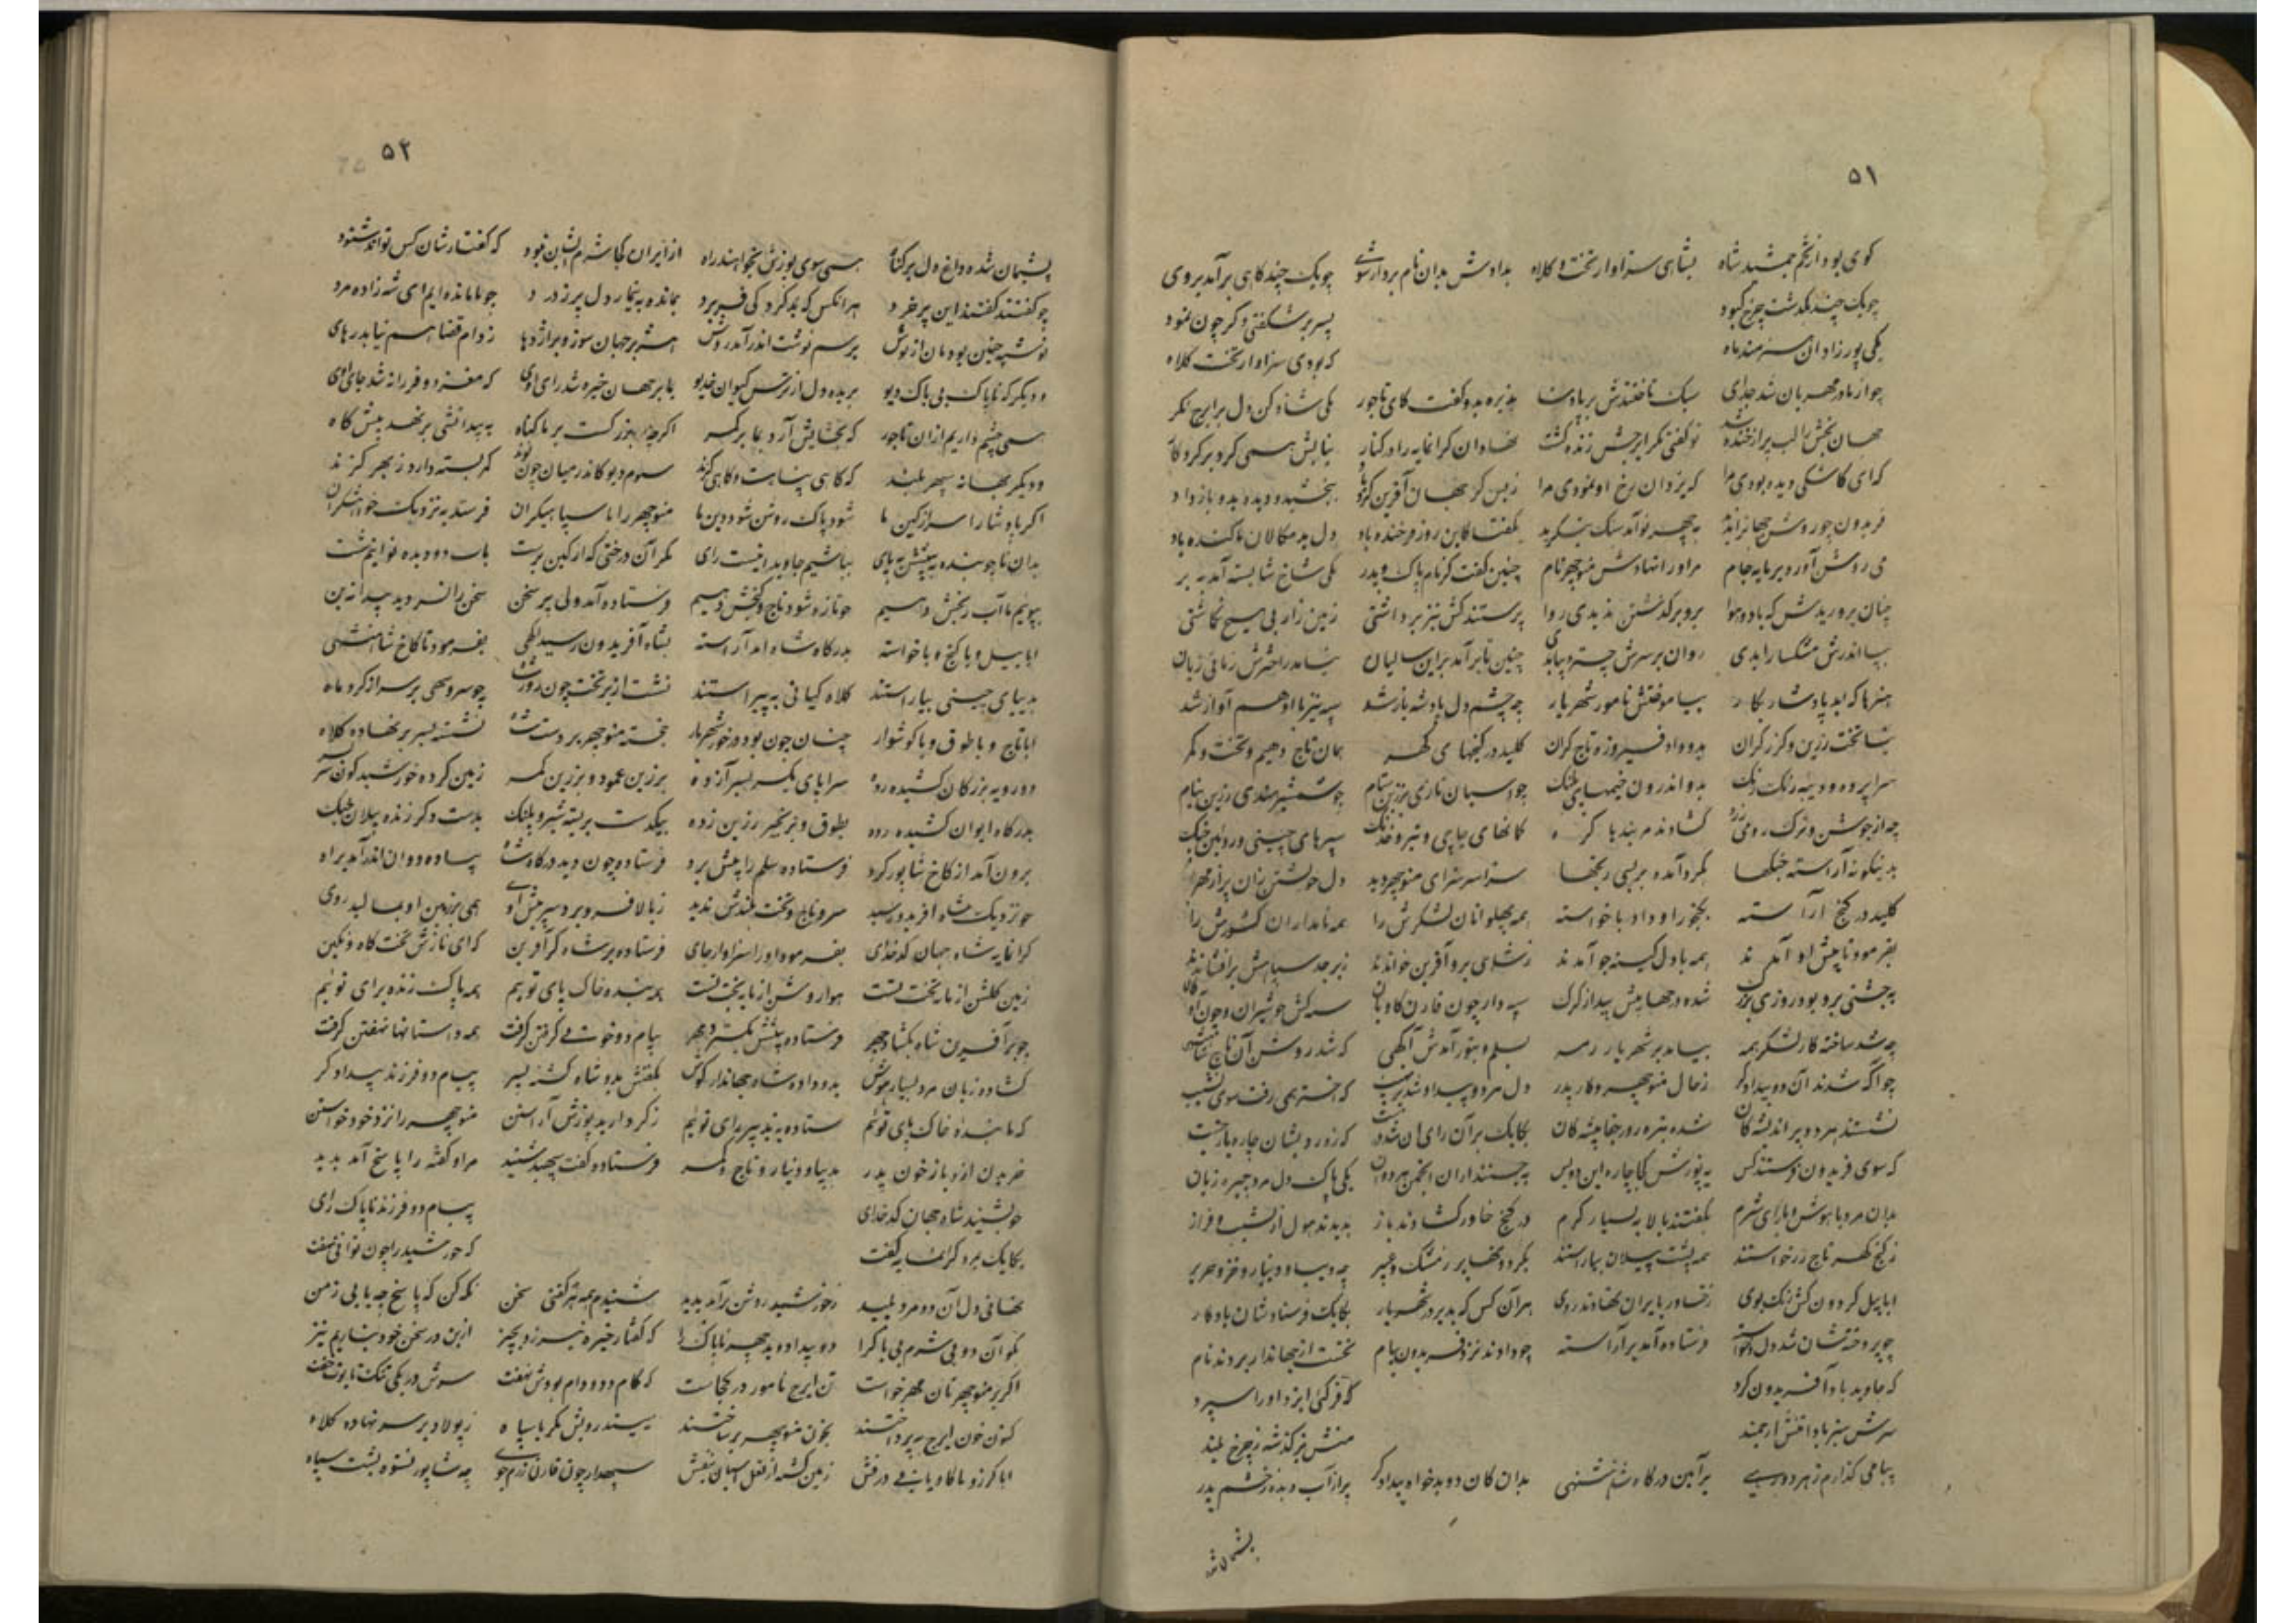 ۵۱
کوی بود از تخم جمشید شاه بشاهی سزاوار تخت و کلاه بدادش بدان نام بردار شوی چو یک چند کاهی برآمد بروی
چو یک چند بگذشت چرخ کبود پسر بر شگفتی دگر چون نمود
یکی پور زاد آن هنرمند ماه که بودی سزاوار تخت کلاه
چو از مادر مهربان شد جدای سبک تاختندش بر پادشا پذیره بدو گفت کای تاجور یکی شاد کن دل برایرج نگر
جهان بخش را لب پر از خنده شد تو گفتی مگر ایرجش زنده گشت نهاد آن گرانمایه را در کنار نیایش همی کرد بر کردگار
که ای کاشکی دیده بودی مرا که یزدان رخ او نمودی مرا زبس کز جهان آفرین کرد یاد ببخشید و دیده بدو باز داد
فریدون چو روشن جهان را بدید به چهر نوآمد سبک بنگرید بگفتا کاین روز فرخنده باد دل بدسگالان ما کنده باد
می روشن آورد و پرمایه جام مر او را نهادش منوچهر نام چنین گفت کز نام پاک و پدر یکی شاخ شایسته آمد به بر
چنان پروریدش که باد و هوا برو بر گذشتن ندیدی روا پرستنده کش نیز برداشتی زمین را به پی هیچ نگذاشتی
بپا اندرش مشک سارا بدی روان بر سرش چتر دیبا بدی چنین تا برآمد براین سالیان نیامد زاخترش زمانی زیان
هنرها که بد پادشا را بکار بیاموختش نامور شهریار چو چشم و دل پادشه باز شد سپه نیز با او هم آواز شد
نیا تخت زرین و گرز گران بدو داد و فیروزه تاج گران کلید در گنجهای گهر همان تاج دهیم و تخت و کمر
سراپرده و دیبه رنگ رنگ بدو اندرون خیمهای پلنگ چو اسبان تازی بزرین ستام چو شمشیر هندی زرین نیام
چه از جوشن و ترک رومی زره گشادند مر بندها گره کمانهای چاچی و تیر خدنگ سپرهای چینی و زوبین جنگ
بدینگونه آراسته جنگها بگرد آمده بر بسی رنجها سراسر سزای منوچهر دید دل خویشتن زان پر از مهر دید
کلید در گنج آراسته بگنجور او داد با خواسته همه پهلوانان لشکرش را همه نامداران کشورش را
بفرمود تا پیش او آمدند همه با دل کینه جو آمدند بشاهی برو آفرین خواندند زبرجد به تاجش برافشاندند
به جشنی برو بود روزی بزرگ شده در جهان میش پیدا ز گرگ سپه دار چون قارن کاوگان سپه کش چو شیران و چون آوگان
چو شد ساخته کار لشکر همه بیامد بر شهریار رمه بسلم و بتور آمدش آگهی که شد روشن آن تاج شاهنشهی
چو آگه شدند آن دو بیدادگر زحال منوچهر و کار پدر دل هر دو بیداد شد پر نهیب که اختر همی رفت سوی نشیب
نشستند هر دو بر اندیشگان شده تیره روز جفا پیشگان یکایک بر آن رای شان شد درست که زو رویشان چاره بایست جست
که سوی فریدون فرستند کس به پوزش کجا چاره این بود بس بجستند از آن انجمن هردوان یکی پاک دل مرد چیره زبان
بدان مرد باهوش و با رای شرم بگفتند با لابه بسیار گرم در گنج خاور گشادند باز بدیدند هول از نشیب و فراز
ز گنج گهر تاج زر خواستند همه پشت پیلان بیاراستند بگردونها بر ز مشک و عبیر چه دیبا و دینار و خز و حریر
ابا پیل گردون کش رنگ بوی ز خاور به ایران نهادند روی هر آن کس که بد بر در شهریار یکایک فرستادشان یادگار
چو پردخته شان شد دل از خواسته فرستاده آمد بر آراسته چو دادند نزد فریدون پیام نخست از جهاندار بردند نام
که جاوید باد آفریدون گرد که فر کئی ایزد او را سپرد
سرش سبز باد و تنش ارجمند منش برگذشته ز چرخ بلند
پیامی گذارم ز هر دو رهی بر آئین درگاه شاهنشهی بدان کان دو بدخواه بیدادگر پر از آب دیده ز خشم پدر
پشیمان شده
۵۲
پشیمان شده داغ دل پر گناه همی سوی پوزش بخواهند راه از ایران کجا شرمشان نبود که گفتارشان کس تواند شنود
چو گفتند گفتند این پرخرد هر آنکس که بد کرد کیفر برد بمانده به تیمار دل پر ز درد چو ما مانده ایم ای شه زاده مرد
نوشته چنین بودمان از بوش برسم نوشت اندر آمد روش هژبر جهان سوز و بر اژدها ز دام قضا هم نیابد رهای
و دیگر که ناپاک بی باک دیو بریده دل از ترس کیوان خدیو بما بر جهان خیره شد رای اوی که مغز دو فرزانه شد جای اوی
همی چشم داریم از آن تاجور که بخشایش آرد بما بر مگر اگرچه بزرگست بر ما گناه به بیدانشی برنهد پیش گاه
و دیگر بهانه سپهر بلند که گاهی پناهست و گاهی گزند سوم دیو کاندر میان چون نوند کمر بسته دارد ز بهر گزند
اگر پادشا را سر از کین ما شود پاک روشن شود دین ما منوچهر را با سپاه گران فرستد به نزدیک خواهشگران
بدان تا چو بنده به پیشش بپای بباشیم جاوید اینست رای مگر آن درختی که از کین برست به آب دو دیده توانیم شست
بپوئیم تا آب رنجش دهیم چو تازه شود تاج و گنجش دهیم فرستاده آمد دلی پر سخن سخن را نه سر دید پیدا نه بن
ابا پیل و با گنج و با خواسته بدرگاه شاه آمد آراسته بشاه آفریدون رسید آگهی بفرمود تا کاخ شاهنشهی
بدیبای چینی بیاراستند کلاه کیانی به پیراستند نشست از بر تخت چون روز شاه چو سرو سهی بر سر از گرد ماه
ابا تاج و با طوق و با گوشوار چنان چون بود در خور شهریار خجسته منوچهر بر دست شاه نشسته بسر بر نهاده کلاه
دو رویه بزرگان کشیده رده سراپای یکسر بسر آزده بزرین عمود و بزرین کمر زمین کرده خورشید گون سر بسر
بدرگاه ایوان کشیده رده بطوق و بزنجیر زرین زده بیک دست بر بسته شیر و پلنگ بدست دگر ژنده پیلان جنگ
برون آمد از کاخ شاپور گرد فرستاده سلم را پیش برد فرستاده چون دید درگاه شاه پیاده دوان اندر آمد براه
چو نزدیک شاه افریدون رسید سر و تاج و تخت بلندش بدید ز بالا فرو برد سر پیش اوی همی بر زمین او بمالید روی
گرانمایه شاه جهان کدخدای بفرمود او را سزاوار جای فرستاده بر شاه کرد آفرین که ای نازش تخت گاه و نگین
زمین گلشن از پایه تخت تست هوا روشن از پایه بخت تست همه بنده خاک پای توئیم همه پاک زنده برای توئیم
چو بر آفرین شاه بگشاد چهر فرستاده پیشش بگسترد مهر پیام دو خونی گرفتن گرفت همه داستانها نهفتن گرفت
گشاده زبان مرد بسیار هوش بدو داده شاه جهاندار گوش بگفتش بدو شاه کشته پسر پیام دو فرزند بیدادگر
که ما بنده خاک پای توئیم ستاده به تدبیر رای توئیم ز کردار بد پوزش آراستن منوچهر را نزد خود خواستن
خریدن ازو باز خون پدر بدیبا و دینار و تاج و کمر فرستاده گفت و سپهبد شنید مر او گفته را پاسخ آمد پدید
چو بشنید شاه جهان کدخدای پیام دو فرزند ناپاک رای
یکایک بمرد گرانمایه گفت که خورشید را چون توانی نهفت
نهانی دل آن دو مرد پلید ز خورشید روشن تر آمد پدید شنیدم همه هر چه گفتی سخن نگه کن که پاسخ چه یابی ز من
بگو آن دو بی شرم بی باک را دو بیداد و بد چهر ناپاک را که گفتار خیره نیرزد بچیز ازین در سخن خود نیاریم نیز
اگر بر منوچهرتان مهر خواست تن ایرج نامور در کجاست که کام دد و دام بودش نهفت سرش در یکی تنگ تابوت خفت
کنون خون ایرج بپرداختند بخون منوچهر برساختند نبینند رویش مگر با سپاه ز پولاد بر سر نهاده کلاه
ابا گرز و با کاویانی درفش زمین گشته از نعل اسبان بنفش سپهدار چون قارن رزم جوی چو شاپور نستوه پشت سپاه